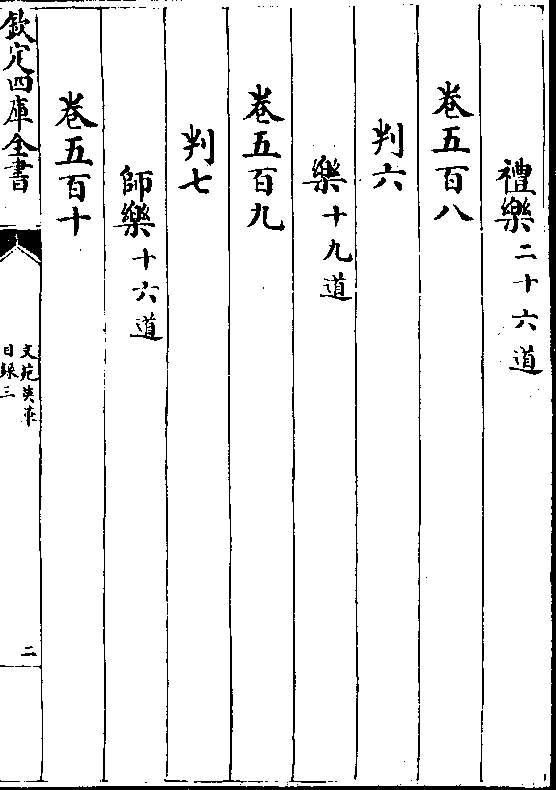 禮樂二十六道
卷五百八
判六
樂十九道
卷五百九
判七
師樂十六道
卷五百十
欽定四庫全書
文苑英華
目錄三
二